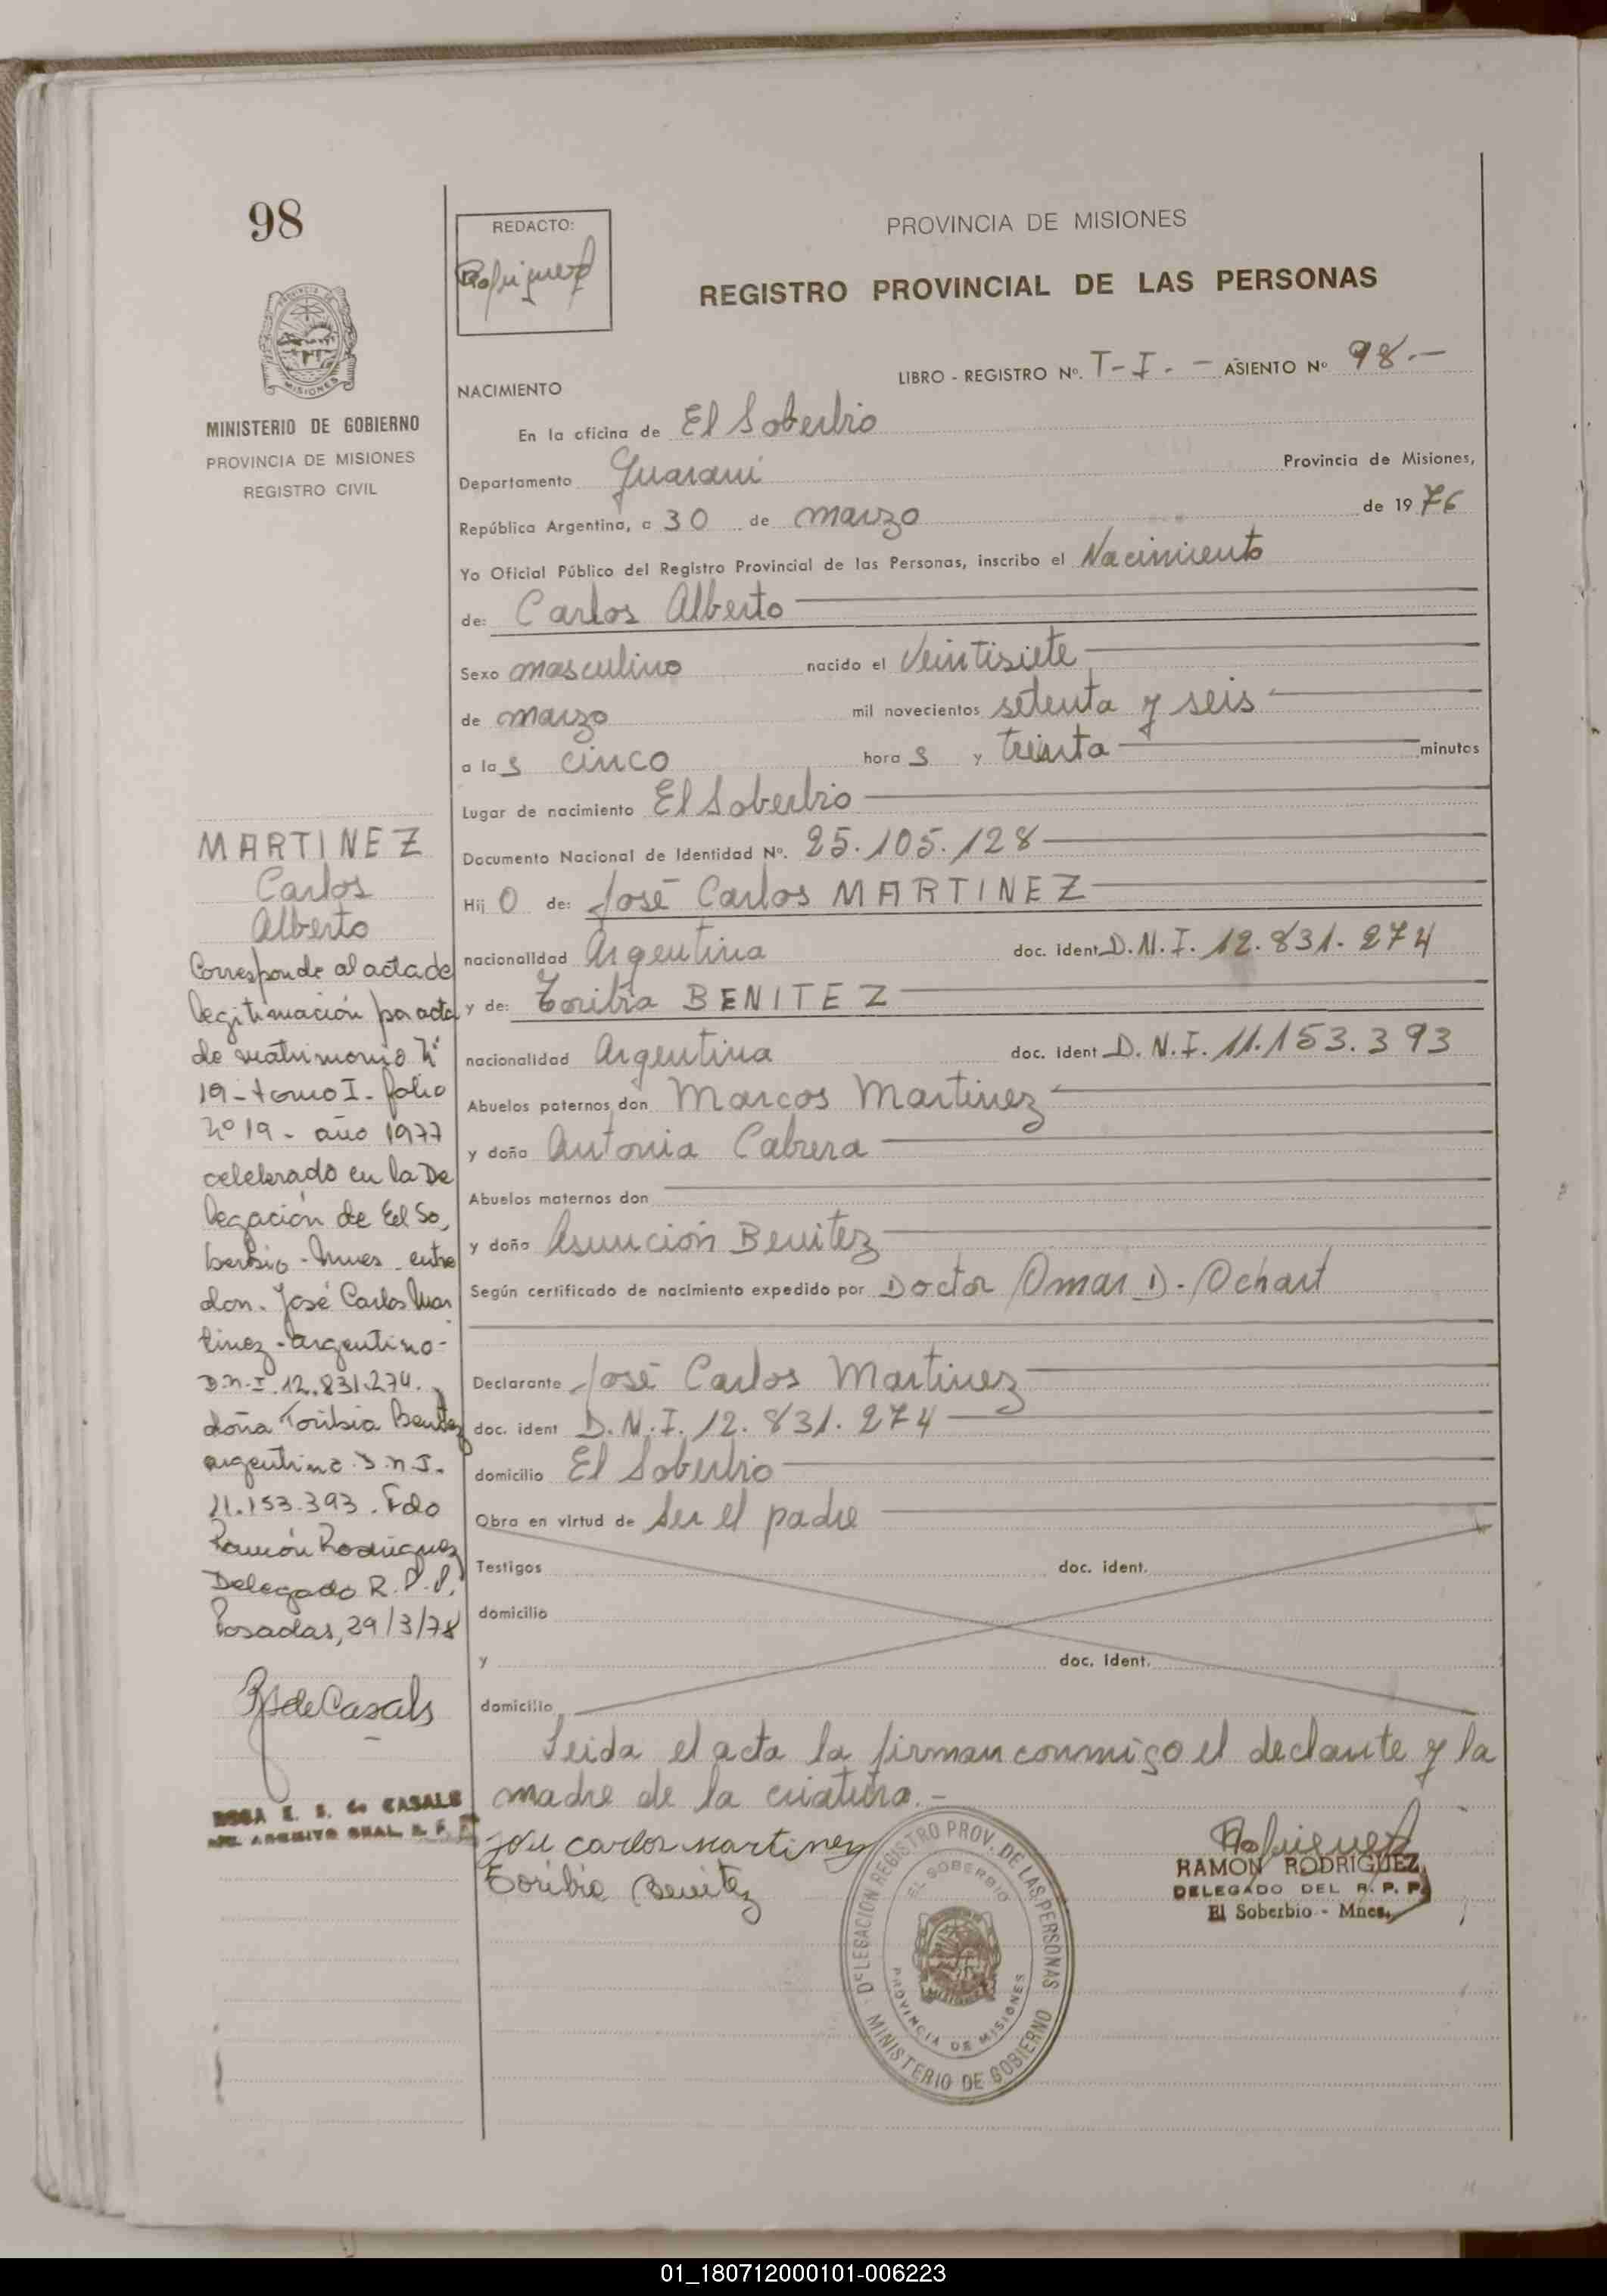 98
REDACTO:
Rodriguez
PROVINCIA DE MISIONES
REGISTRO PROVINCIAL DE LAS PERSONAS
LIBRO - REGISTRO Nº. T-I. - ASIENTO Nº 98.-
NACIMIENTO
MISIONES
MINISTERIO DE GOBIERNO
PROVINCIA DE MISIONES
REGISTRO CIVIL
En la oficina de El Soberbio
Departamento Guarani Provincia de Misiones,
República Argentina, a 30 de marzo de 1976
Yo Oficial Público del Registro Provincial de las Personas, inscribo el Nacimiento
de: Carlos Alberto
Sexo masculino nacido el Veintisiete
de marzo mil novecientos setenta y seis
a las cinco horas y treinta minutos
Lugar de nacimiento El Soberbio
Documento Nacional de Identidad Nº. 25.105.128
Hijo de: José Carlos MARTINEZ
nacionalidad Argentina doc. ident. D.N.I. 12.831.274
y de: Toribia BENITEZ
nacionalidad Argentina doc. ident D.N.I. 11.153.393
Abuelos paternos don Marcos Martinez
y doña Antonia Cabrera
Abuelos maternos don
y doña Asunción Benitez
Según certificado de nacimiento expedido por Doctor Omar D. Ochart
Declarante José Carlos Martinez
doc. ident D.N.I. 12.831.274
domicilio El Soberbio
Obra en virtud de ser el padre
Testigos doc. ident.
domicilio
y doc. ident.
domicilio
Leida el acta la firman conmigo el declante y la
madre de la criatura.-
José Carlos Martinez
Toribia Benitez
MARTINEZ
Carlos
Alberto
Corresponde al acta de
legitimación por acta
de matrimonio Nº
19 - tomo I - folio
Nº 19 - año 1977
celebrado en la De
legación de El So,
berbio - Mnes - entre
don. José Carlos Mar
tinez - argentino -
D.N.I. 12.831.274.
doña Toribia Benitez
argentina D.N.I.
11.153.393. Fdo
Ramón Rodriguez
Delegado R.P.P.
Posadas, 29/3/78
de Casals
ROSA E. S. de CASALS
ARCHIVO GRAL. R. P. P.
DELEGACION REGISTRO PROV. DE LAS PERSONAS
EL SOBERBIO
PROVINCIA DE MISIONES
MINISTERIO DE GOBIERNO
Rodriguez
RAMON RODRIGUEZ
DELEGADO DEL R. P. P.
El Soberbio - Mnes.
01_180712000101-006223